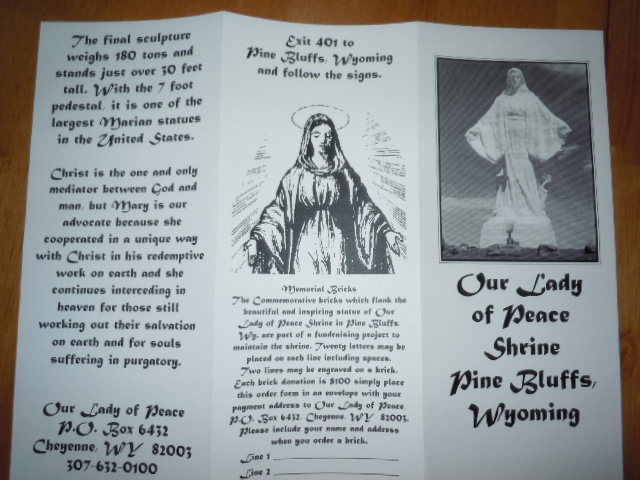 The final sculpture
weighs 180 tons and
stands just over 30 feet
tall. With the 7 foot
pedestal, it is one of the
largest Marian statues
in the United States.
Christ is the one and only
mediator between God and
man, but Mary is our
advocate because she
cooperated in a unique way
with Christ in his redemptive
work on earth and she
continues interceding in
heaven for those still
working out their salvation
on earth and for souls
suffering in purgatory.
Our Lady of Peace
P.O. Box 6432
Cheyenne, WY 82003
307-632-0100
Exit 401 to
Pine Bluffs, Wyoming
and follow the signs.
Memorial Bricks
The Commemorative bricks which flank the
beautiful and inspiring statue of Our
Lady of Peace Shrine in Pine Bluffs,
Wy. are part of a fundraising project to
maintain the shrine. Twenty letters may be
placed on each line including spaces.
Two lines may be engraved on a brick.
Each brick donation is $100 simply place
this order form in an envelope with your
payment address to Our Lady of Peace,
P.O. Box 6432, Cheyenne, WY 82003.
Please include your name and address
when you order a brick.
Line 1
Line 2
Our Lady
of Peace
Shrine
Pine Bluffs,
Wyoming